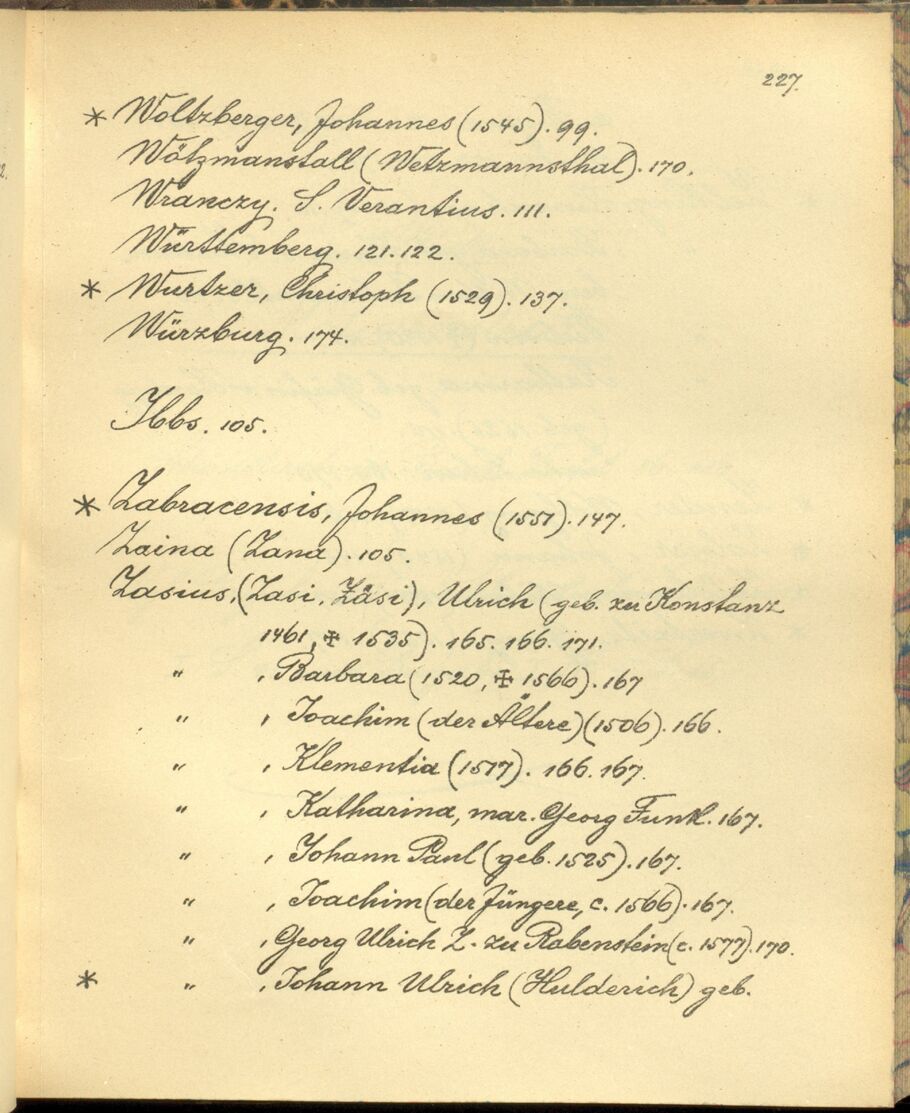 227.
* Woltzberger, Johannes (1545). 99.
Wötzmanstall (Wetzmannsthal). 170.
Wranczy. S. Verantius. 111.
Württemberg. 121. 122.
* Wurtzer, Christoph (1529). 137.
Würzburg. 174.
Ybbs. 105.
* Zabracensis, Johannes (1551). 147.
Zaina (Zana). 105.
Zasius, (Zasi, Zäsi), Ulrich (geb. zu Konstanz
1461, ✠ 1535). 165. 166. 171.
" , Barbara (1520, ✠ 1566). 167
" , Joachim (der Ältere) (1506). 166.
" , Klementia (1517). 166. 167.
" , Katharina, mar. Georg Funk. 167.
" , Johann Paul (geb. 1525). 167.
" , Joachim (der Jüngere, c. 1566). 167.
" , Georg Ulrich Z. zu Rabenstein (c. 1577). 170.
* " , Johann Ulrich (Hulderich) geb.